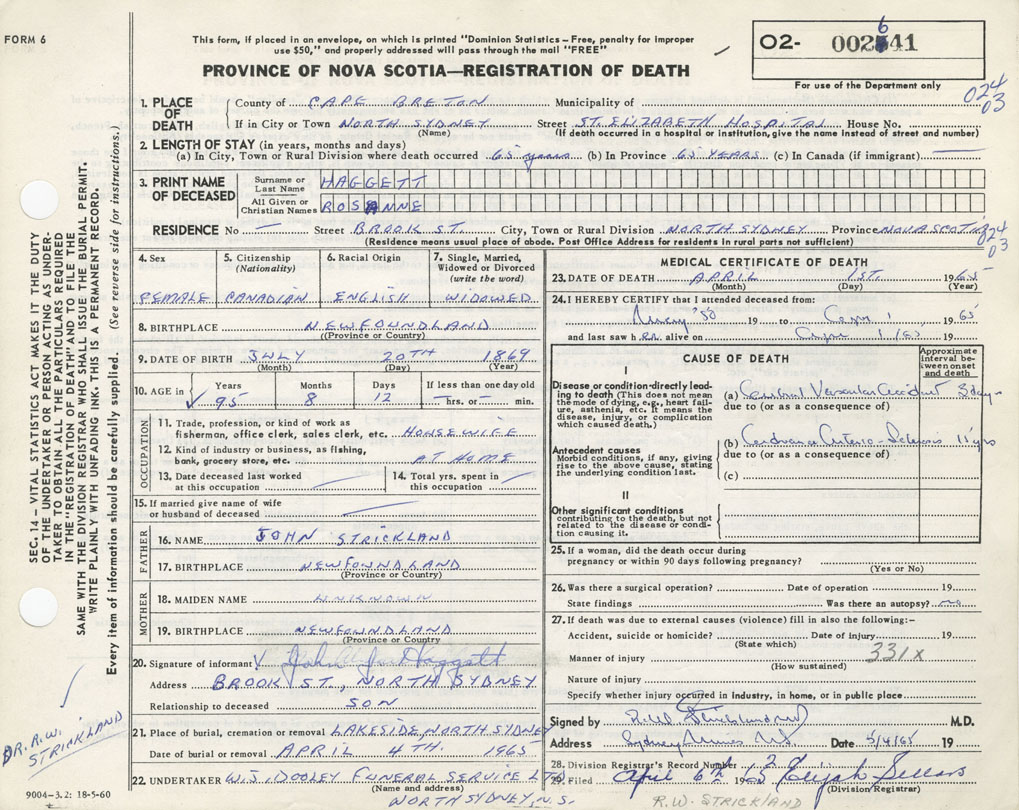 FORM 6
This form, if placed in an envelope, on which is printed "Dominion Statistics – Free, penalty for improper
use $50," and properly addressed will pass through the mail "FREE"
O2- 002641
For use of the Department only
PROVINCE OF NOVA SCOTIA—REGISTRATION OF DEATH
024
03
1. PLACE OF DEATH
County of CAPE BRETON Municipality of
If in City or Town NORTH SYDNEY Street ST. ELIZABETH HOSPITAL House No.
(Name) (If death occurred in a hospital or institution, give the name instead of street and number)
2. LENGTH OF STAY (in years, months and days)
(a) In City, Town or Rural Division where death occurred 65 years (b) In Province 65 YEARS (c) In Canada (if immigrant)
3. PRINT NAME OF DECEASED
Surname or Last Name HAGGETT
All Given or Christian Names ROSANNE
RESIDENCE No — Street BROOK ST. City, Town or Rural Division NORTH SYDNEY Province NOVA SCOTIA
(Residence means usual place of abode. Post Office Address for residents in rural parts not sufficient)
024
03
4. Sex
FEMALE
5. Citizenship (Nationality)
CANADIAN
6. Racial Origin
ENGLISH
7. Single, Married, Widowed or Divorced (write the word)
WIDOWED
8. BIRTHPLACE NEWFOUNDLAND
(Province or Country)
9. DATE OF BIRTH JULY 20TH 1869
(Month) (Day) (Year)
10. AGE in
Years Months Days If less than one day old
95 8 12 — hrs. or — min.
OCCUPATION
11. Trade, profession, or kind of work as
fisherman, office clerk, sales clerk, etc. HOUSEWIFE
12. Kind of industry or business, as fishing,
bank, grocery store, etc. AT HOME
13. Date deceased last worked
at this occupation
14. Total yrs. spent in
this occupation
15. If married give name of wife
or husband of deceased
FATHER
16. NAME JOHN STRICKLAND
17. BIRTHPLACE NEWFOUNDLAND
(Province or Country)
MOTHER
18. MAIDEN NAME UNKNOWN
19. BIRTHPLACE NEWFOUNDLAND
(Province or Country
20. Signature of informant John J. Haggett
Address BROOK ST., NORTH SYDNEY
Relationship to deceased SON
21. Place of burial, cremation or removal LAKESIDE NORTH SYDNEY
Date of burial or removal APRIL 4TH. 1965
22. UNDERTAKER W.J. DOOLEY FUNERAL SERVICE LTD
(Name and address)
NORTH SYDNEY, N.S.
MEDICAL CERTIFICATE OF DEATH
23. DATE OF DEATH APRIL 1ST. 1965
(Month) (Day) (Year)
24. I HEREBY CERTIFY that I attended deceased from:
19 to 1 1965
and last saw h alive on
CAUSE OF DEATH
Approximate interval between onset and death
I
Disease or condition-directly leading
to death (This does not mean
the mode of dying, e.g., heart failure,
asthenia, etc. It means the
disease, injury, or complication
which caused death.)
(a) Cerebral Vascular Accident 3 days
due to (or as a consequence of)
Antecedent causes
Morbid conditions, if any, giving
rise to the above cause, stating
the underlying condition last.
(b) Arterio-Sclerosis 11 yrs
due to (or as a consequence of)
(c)
II
Other significant conditions
contributing to the death, but not
related to the disease or condition
causing it.
25. If a woman, did the death occur during
pregnancy or within 90 days following pregnancy?
(Yes or No)
26. Was there a surgical operation? Date of operation 19
State findings Was there an autopsy? no
27. If death was due to external causes (violence) fill in also the following:-
Accident, suicide or homicide? Date of injury 19
(State which)
Manner of injury 331X
(How sustained)
Nature of injury
Specify whether injury occurred in industry, in home, or in public place
Signed by R.W. Strickland M.D.
Address Sydney Mines N.S. Date 5/4/65 19
28. Division Registrar's Record Number
29. Filed April 6th 1965 Elijah Sellars
(Division/Registrar)
R.W. STRICKLAND
SEC. 14 – VITAL STATISTICS ACT MAKES IT THE DUTY
OF THE UNDERTAKER OR PERSON ACTING AS UNDERTAKER
TO OBTAIN ALL THE PARTICULARS REQUIRED
IN THE "REGISTRATION OF DEATH" AND TO FILE THE
SAME WITH THE DIVISION REGISTRAR WHO SHALL ISSUE THE BURIAL PERMIT.
WRITE PLAINLY WITH UNFADING INK. THIS IS A PERMANENT RECORD.
Every item of information should be carefully supplied. (See reverse side for instructions.)
DR. R.W. STRICKLAND
9004-3.2: 18-5-60